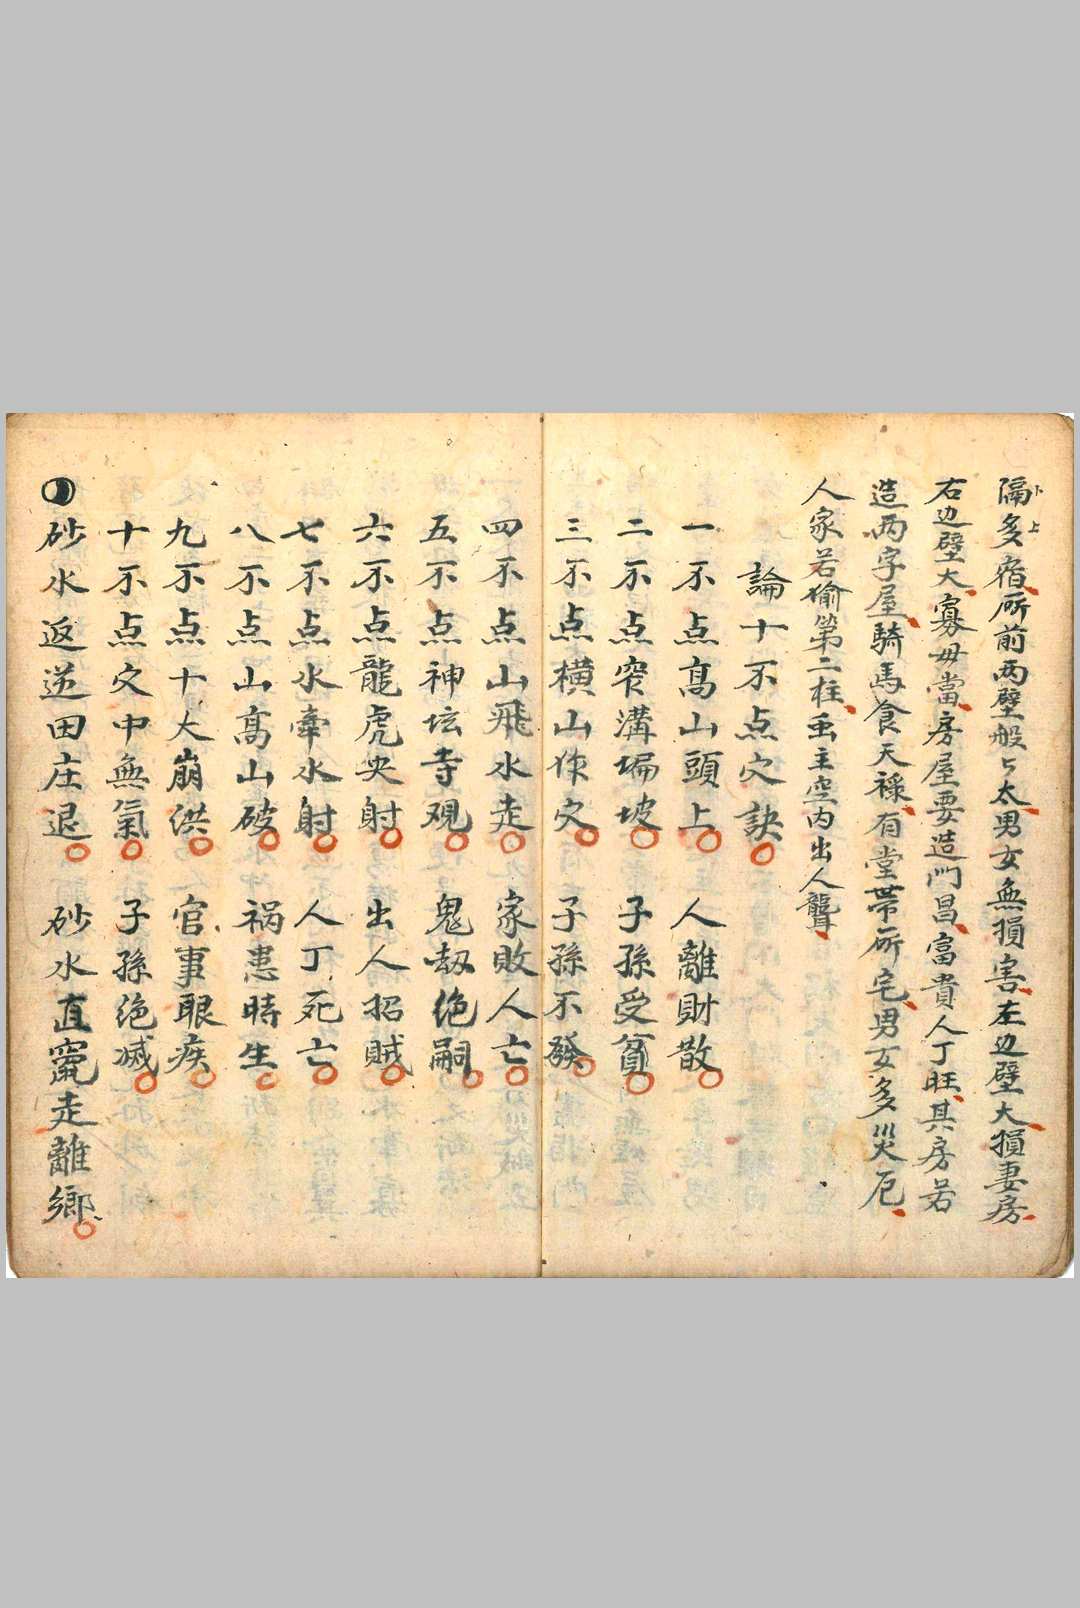 隔多宿所前两壁般々太男女無損害左边壁大損妻房
右边壁大寡母當房屋要造門昌富貴人丁旺其房若
造两字屋騎馬食天禄有堂帯所宅男女多災厄
人家若偷第二柱重主空内出人聾
論十不点穴訣
一不点髙山頭上 人離財散
二不点窄溝壖坡 子孫受貧
三不点横山作穴 子孫不發
四不点山飛水走 家敗人亡
五不点神坛寺观 鬼劫绝嗣
六不点龍虎尖射 出人招賊
七不点水牽水射 人丁死亡
八不点山髙山破 祸患時生
九不点十大崩洪 官事眼疾
十不点穴中無氣 子孫绝滅
砂水返逆田庄退 砂水直竄走離鄉